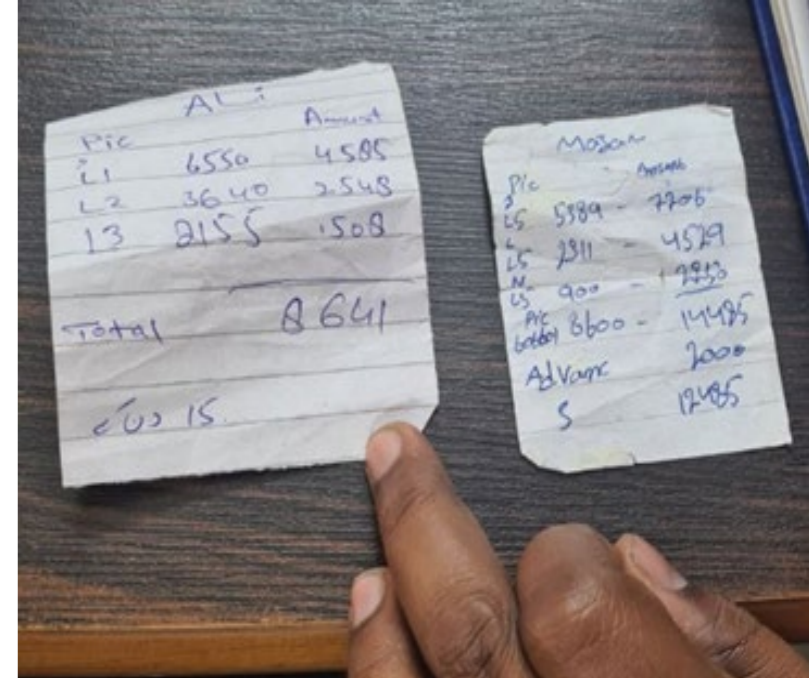 ALi
Pic Amunt
L1 6550 4585
L2 3640 2548
L3 2155 1508
Total 8641
15
Pic Amount
L5 5389 - 7706
L5 2311 - 4529
L5 900 - 2250
Pic
8600 - 14485
Advanc 2000
S 12485